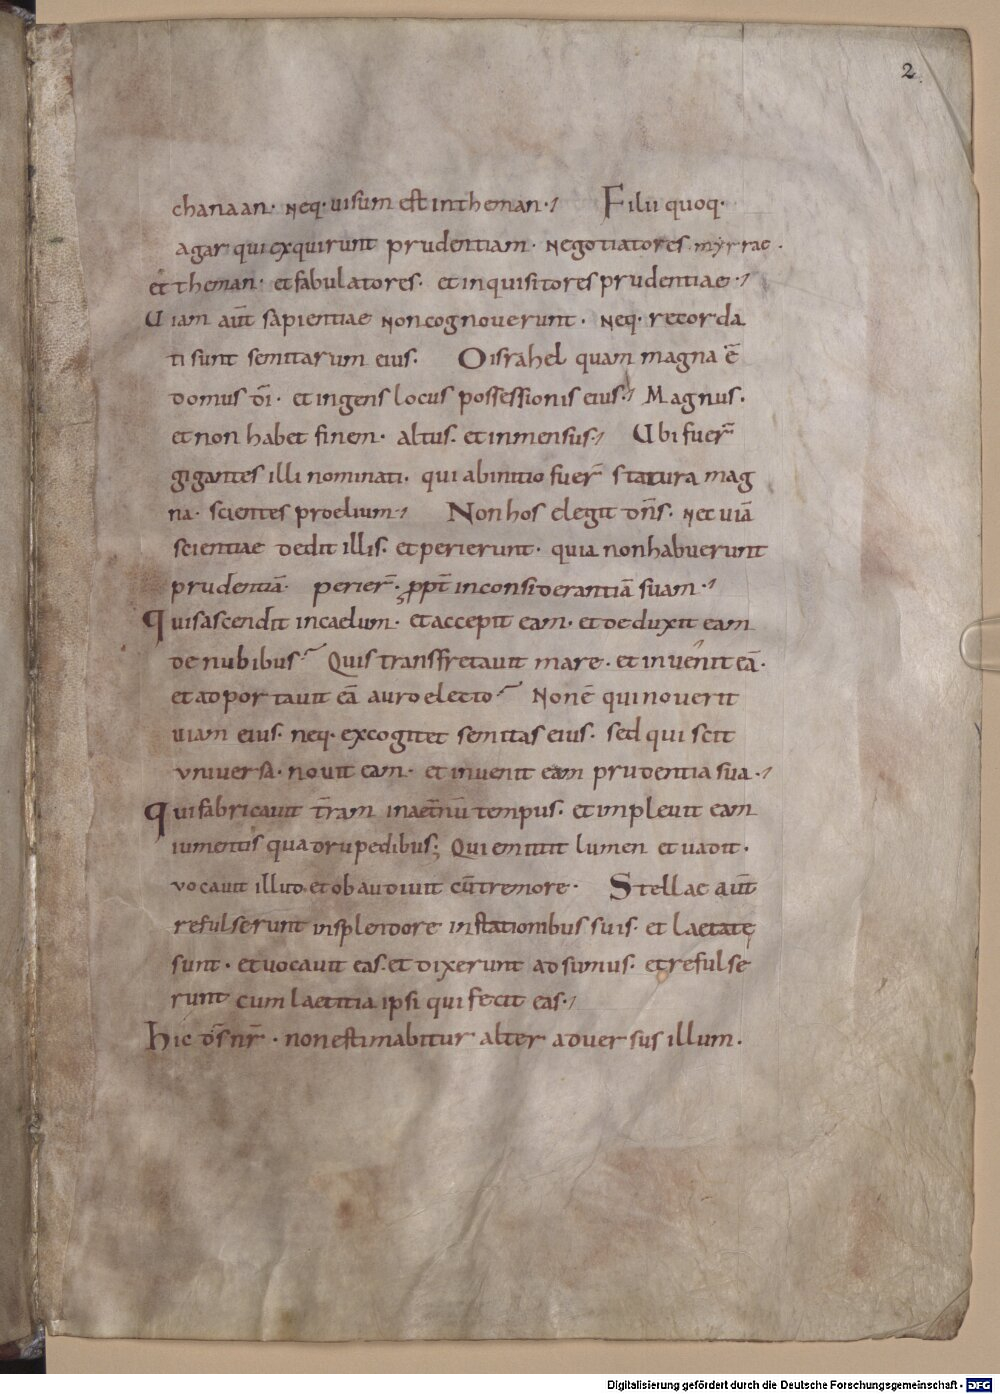 2
chanaan· neq· uisum est intheman·/ Filii quoq·
agar qui exquirunt prudentiam· Negotiatores myrrae·
et theman· et fabulatores· et inquisitores prudentiae·/
Uiam aut̄ sapientiae Non cognouerunt· neq· recorda
ti sunt semitarum eius· O israhel quam magna ē
domus dī· et ingens locus possessionis eius·/ Magnus·
et non habet finem· altus· et inmensus·/ Ubi fuer̄
gigantes illi nominati· qui abinitio fuer̄ statura mag
na· scientes proelium·/ Non hos elegit dn̄s· Nec uiā
scientiae dedit illis· et perierunt· quia non habuerunt
prudentiā· perier̄· ppt̄ inconsiderantiā suam·/
Quis ascendit in caelum· et accepit eam· et deduxit eam
de nubibus· Quis transfretauit mare· et inuenit eā·
et adportauit eā auro electo· Non ē qui nouerit
uiam eius· neq· excogitet semitas eius· sed qui scit
uniuersa· nouit eam· et inuenit eam prudentia sua·/
Qui fabricauit t̄ram in aet̄nū tempus· et impleuit eam
iumentis quadrupedibus; Qui emittit lumen et uadit·
uocauit illud· et obaudiuit cū tremore· Stellae aut̄
refulserunt insplendore in stationibus suis· et laetatę
sunt· et uocauit eas· et dixerunt adsumus· et refulse
runt cum laetitia ipsi qui fecit eas·/
Hic dς̄ nr̄· non estimabitur alter aduersus illum·
Digitalisierung gefördert durch die Deutsche Forschungsgemeinschaft - DFG